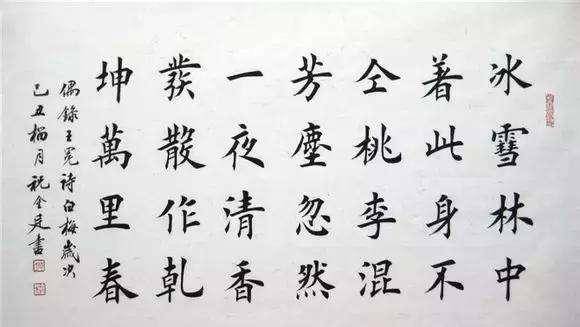 冰雪林中
著此身不
仝桃李混
芳塵忽然
一夜清香
發散作乾
坤萬里春
偶錄王冕詩白梅歲次
己丑榴月祝書